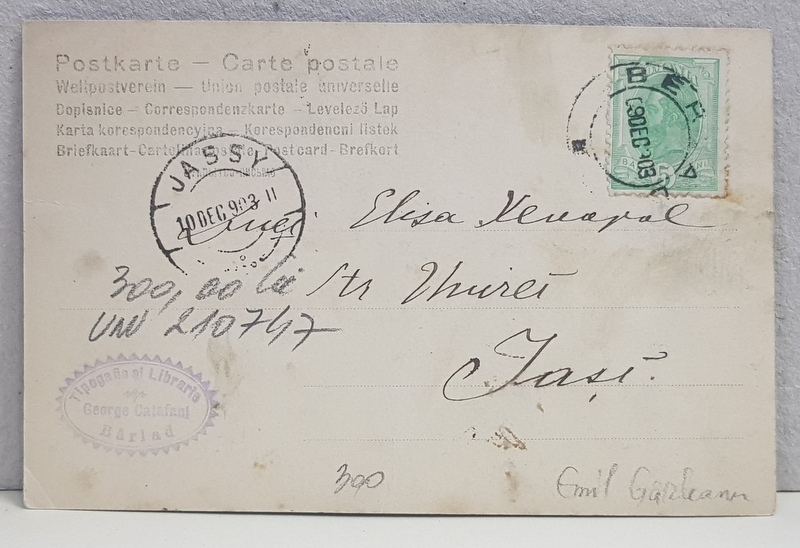 Postkarte – Carte postale
Weltpostverein – Union postale universelle
Dopisnice – Correspondenzkarte – Levelező Lap
Karta korespondencyjna – Korespondencni listek
Briefkaart – Cartolina postale Postcard – Brefkort
JASSY
10 DEC 903 11
BER
09 DEC 903
Elisa Xenopol
300,00 lei Str Unirei
UNU 210747
Iași.
Tipografia și Librarie
George Catafani
Bârlad
300
Emil Gârleanu